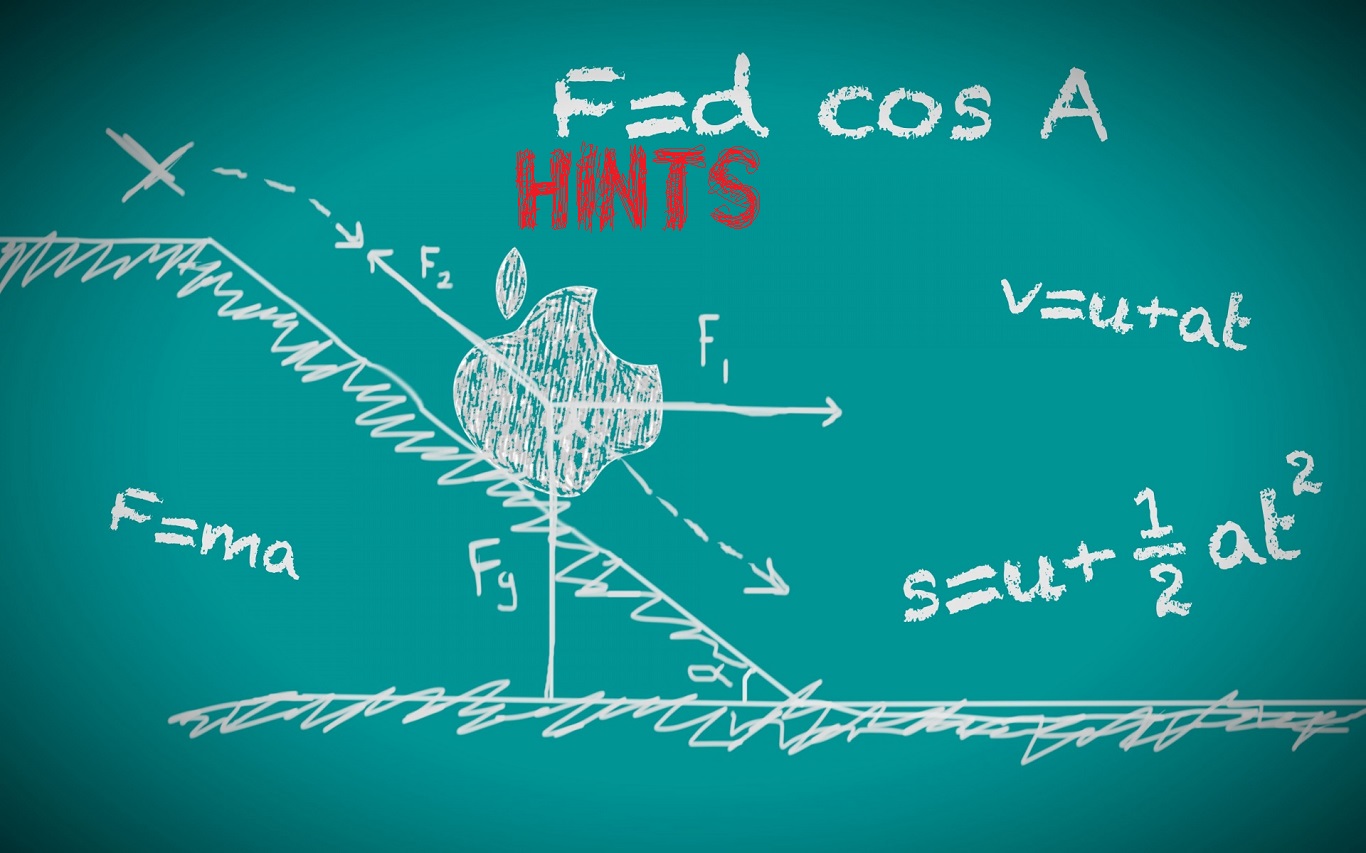 F=d cos A
HINTS
F₂
F₁
v=u+at
F=ma
Fg
s=u+½at²
α